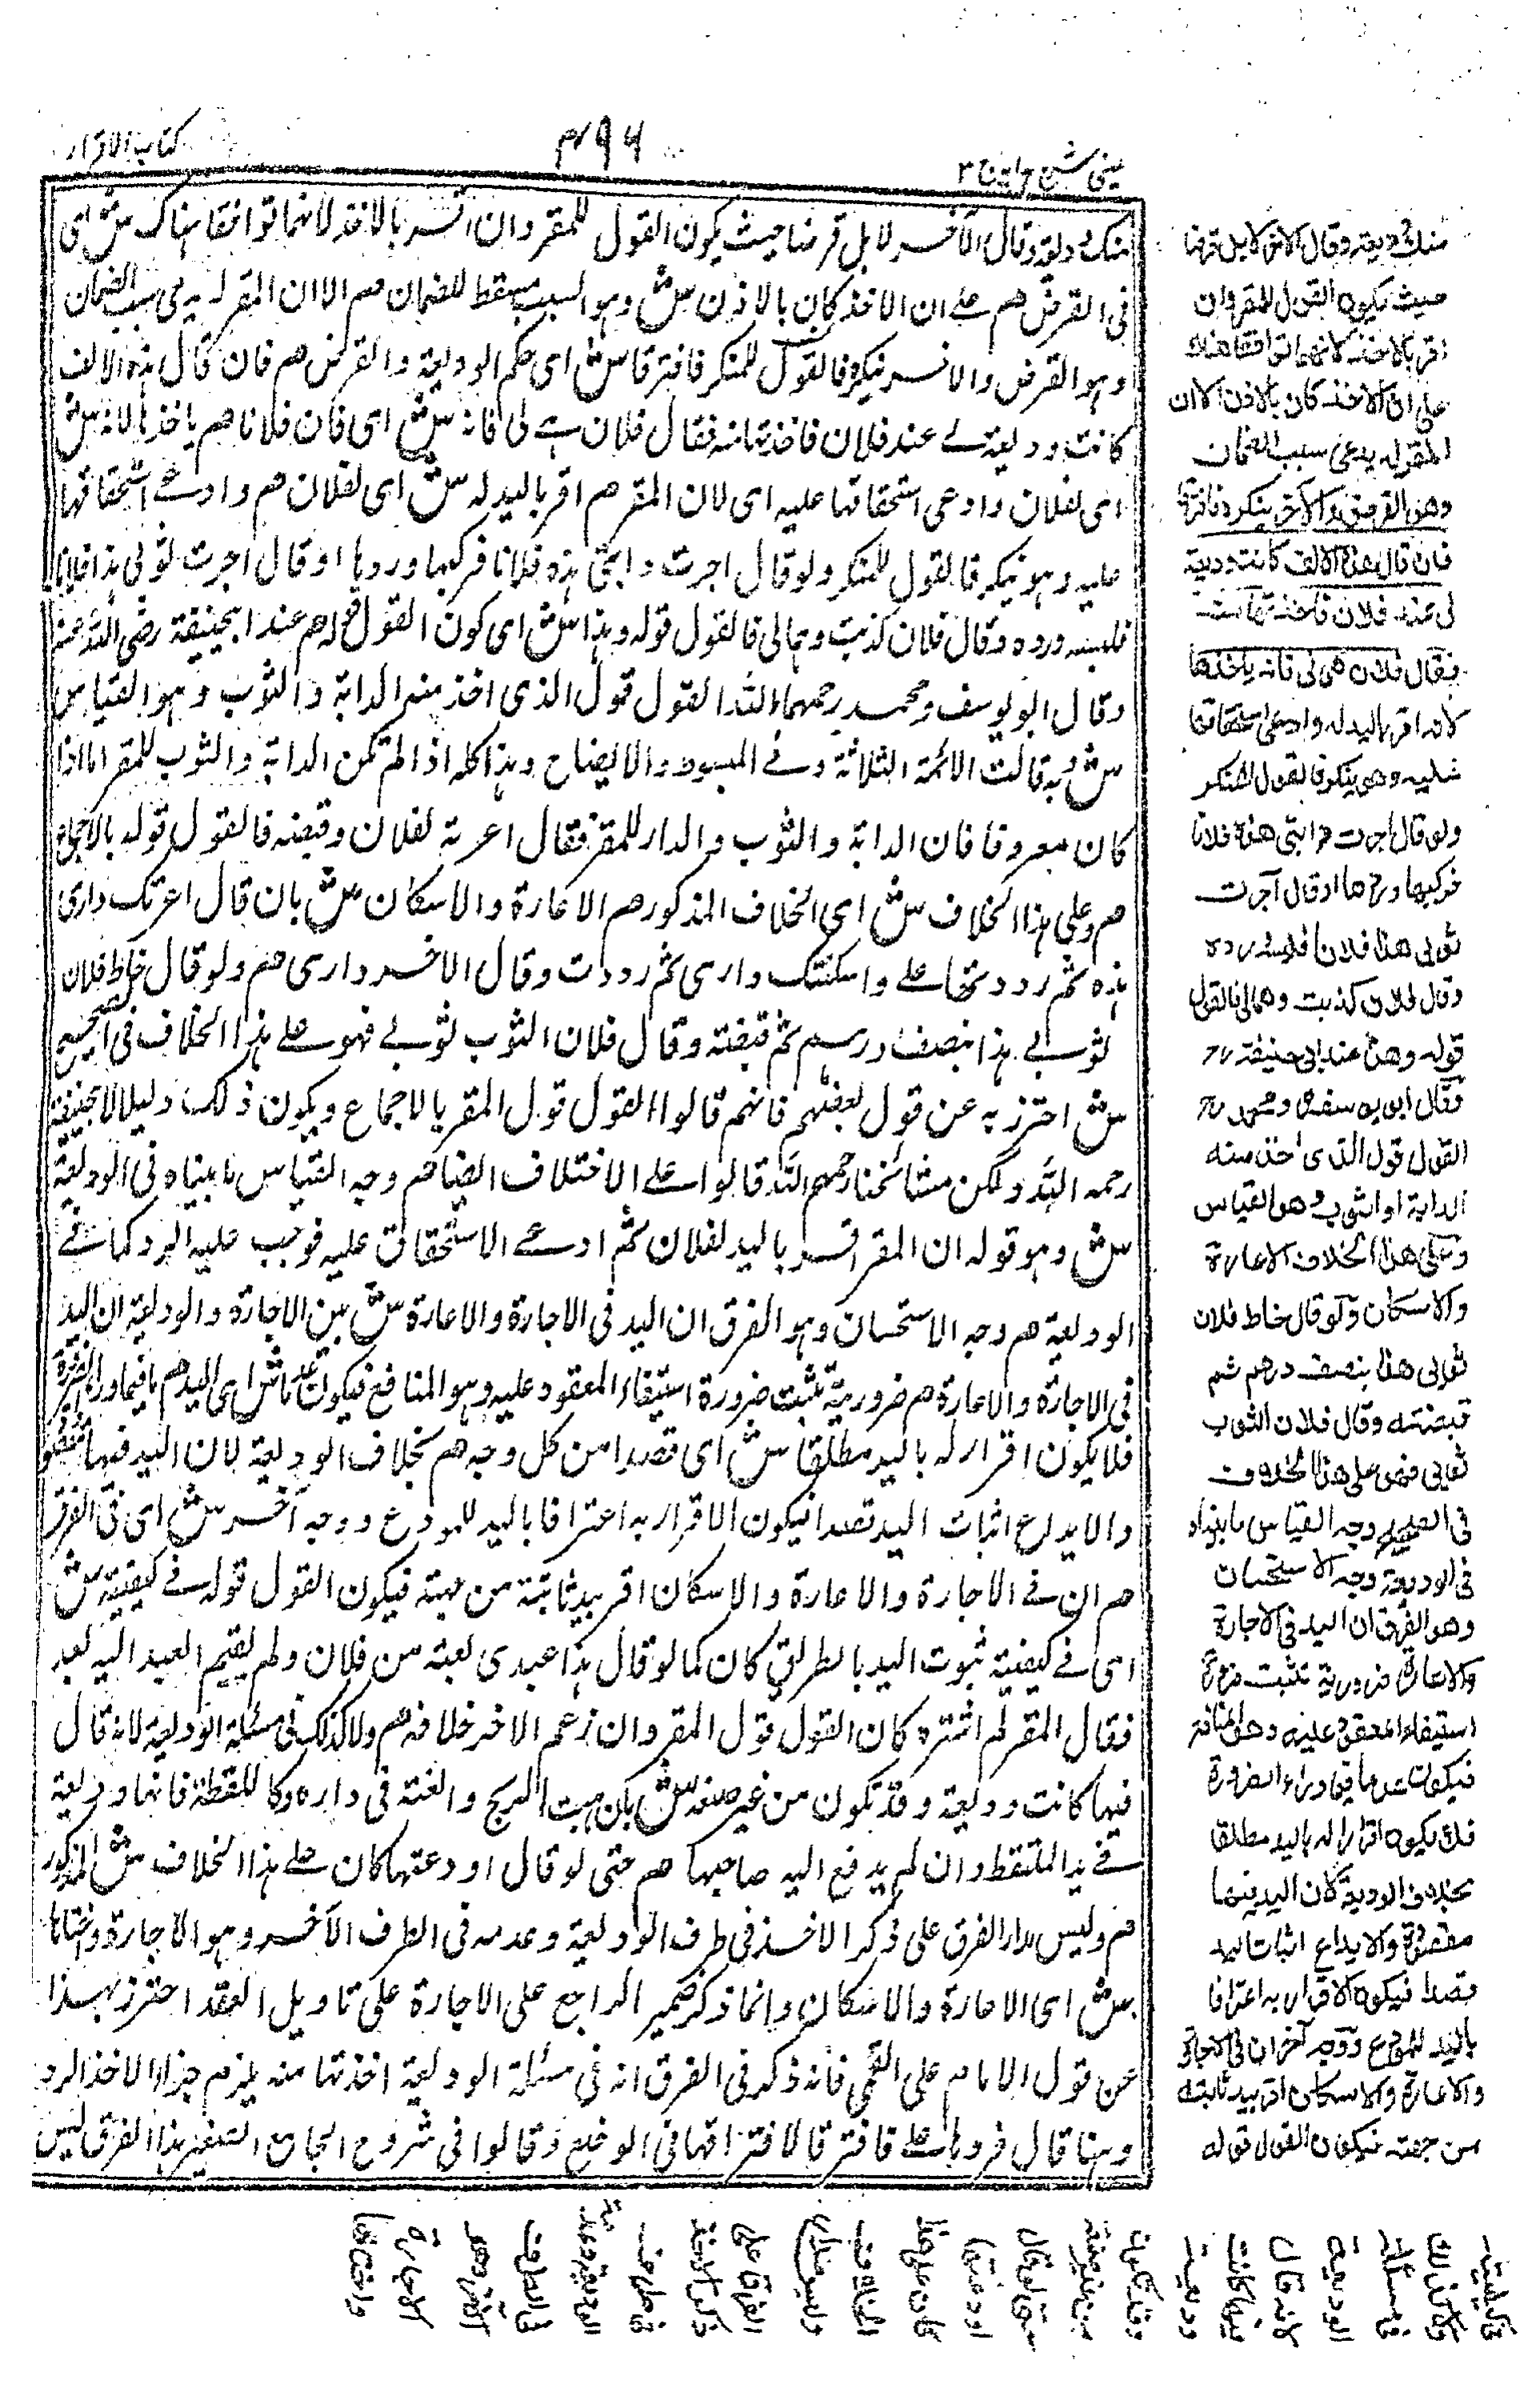 عینی شرح ہدایہ ج ۳
۴۹۶
کتاب الاقرار
منک ودیعة وقال الآخر لا بل قرضا حیث یکون القول للمقر وان اقر بالاخذ لانهما توافقا هناک ش ای
فی القرض هم علے ان الاخذ کان بالاذن ش وهو السبب مسقط للضمان هم الا ان المقر له یدعی سبب الضمان
وهو القرض والاخر ینکره فالقول للمنکر فافترقا ش ای حکم الودیعة والقرض هم فان قال هذه الالف
کانت ودیعة لے عند فلان فاخذتها منه فقال فلان هے لی فانه ش ای فان فلانا هم یاخذها لانه ش
ای لفلان وادعی استحقاقها علیه ای لان المقر هم اقر بالید له ش ای لفلان هم وادعے استحقاقها
علیه وهو ینکر فالقول للمنکر ولو قال اجرت دابتی هذه فلانا فرکبها وردها او قال اجرت ثوبی هذا فلانا
فلبسه ورده وقال فلان کذبت وهما لی فالقول قوله وهذا ش ای کون القول قوله هم عند ابیحنیفة رضی الله عنه
وقال ابو یوسف ومحمد رحمهما الله القول قول الذی اخذ منه الدابة والثوب وهو القیاس
ش وبه قالت الائمة الثلاثة وفے المبسوط والایضاح وهذا کله اذا لم تکن الدابة والثوب للمقر اما اذا
کان معروفا فان الدابة والثوب والدار للمقر فقال اعرته لفلان وقبضه فالقول قوله بالاجماع
هم وعلی هذا الخلاف ش ای الخلاف المذکور هم الاعارة والاسکان ش بان قال اعرتک داری
هذه ثم رددتها علے واسکنتک داری ثم رددت وقال الاخر داری هم ولو قال خاط فلان
ثوبے هذا بنصف درهم ثم قبضته وقال فلان الثوب ثوبے فهو علے هذا الخلاف فی الصحیح
ش احترز به عن قول بعضهم فانهم قالوا القول قول المقر بالاجماع ویکون ذلک دلیلا لابیحنیفة
رحمه الله ولکن مشائخنا رحمهم الله قالوا علے الاختلاف ایضا هم وجه القیاس ما بیناه فی الودیعة
ش وهو قوله ان المقر اقر بالید لفلان ثم ادعے الاستحقاق علیه فوجب علیه الرد کما فے
الودیعة هم وجه الاستحسان وهو الفرق ان الید فی الاجارة والاعارة ش بین الاجارة والودیعة ان الید
فی الاجارة والاعارة هم ضروریة تثبت ضرورة استیفاء المعقود علیه وهو المنافع فیکون عدما ش ای الید هم فیما وراء الضرورة
فلا یکون اقرار له بالید مطلقا ش ای قصدا من کل وجه هم بخلاف الودیعة لان الید فیها مقصودة
والایداع اثبات الید قصدا فیکون الاقرار به اعترافا بالید للمودع ووجه آخر ش ای فی الفرق
هم ان فے الاجارة والاعارة والاسکان اقر بید ثابتة من جهته فیکون القول قوله فے کیفیته ش
ای فے کیفیة ثبوت الید بالطریق کان کما لو قال هذا عبدی بعته من فلان ولم یقیم العبد الیه بعد
فقال المقر لم اشتره کان القول قول المقر وان زعم الاخر خلافه هم ولا کذلک فی مسئلة الودیعة لانه قال
فیها کانت ودیعة وقد تکون من غیر صنعه ش بان هبت الریح والقته فی داره وکا للقطة فانها ودیعة
فے ید الملتقط وان لم یدفع الیه صاحبها هم حتی لو قال اودعتها کان علے هذا الخلاف ش المذکور
هم ولیس مدار الفرق علی ذکر الاخذ فی طرف الودیعة وعدمه فی الطرف الآخر وهو الاجارة واختاها
ش ای الاعارة والاسکان وانما ذکر ضمیر الراجع علی الاجارة علی تاویل العقد احترز بهذا
عن قول الامام علی القمی فانه ذکر فی الفرق انه فی مسئلة الودیعة اخذتها منه یلزم جزاء الاخذ الرد
وهنا قال فردها علے فافترقا لافتراقها فی الوضع وقالوا فی شروح الجامع الصغیر هذا الفرق لیس
منک ودیعة وقال الاخر لا بل قرضا
حیث یکون القول للمقر وان
اقر بالاخذ لانهما توافقا هناک
علی ان الاخذ کان بالاذن الا ان
المقر له یدعی سبب الضمان
وهو القرض والآخر ینکره فافترقا
فان قال هذه الالف کانت ودیعة
لی عند فلان فاخذتها منه
فقال فلان هی لی فانه یاخذها
لانه اقر بالید له وادعی استحقاقها
علیه وهو ینکر فالقول للمنکر
ولو قال اجرت دابتی هذه فلانا
فرکبها وردها او قال آجرت
ثوبی هذا فلانا فلبسه ورده
وقال فلان کذبت وهما لی فالقول
قوله وهذا عند ابی حنیفة رح
وقال ابو یوسف ومحمد رح
القول قول الذی اخذ منه
الدابة او الثوب وهو القیاس
وعلی هذا الخلاف الاعارة
والاسکان ولو قال خاط فلان
ثوبی هذا بنصف درهم ثم
قبضته وقال فلان الثوب
ثوبی فهو علی هذا الخلاف
فی الصحیح وجه القیاس ما بیناه
فی الودیعة وجه الاستحسان
وهو الفرق ان الید فی الاجارة
والاعارة ضروریة تثبت ضرورة
استیفاء المعقود علیه وهو المنافع
فیکون عدما فیما وراء الضرورة
فلا یکون اقرارا له بالید مطلقا
بخلاف الودیعة لان الید فیها
مقصودة والایداع اثبات الید
قصدا فیکون الاقرار به اعترافا
بالید للمودع ووجه آخر ان فی الاجارة
والاعارة والاسکان اقر بید ثابتة
من جهته فیکون القول قوله
فی کیفیته
ولا کذلک
فی مسئلة
الودیعة
لانه قال
فیها کانت
ودیعة
وقد تکون
من غیر صنعه
حتی لو قال
اودعتها
کان علی هذا
الخلاف
ولیس مدار
الفرق علی
ذکر الاخذ
فی طرف
الودیعة وعدمه
فی الطرف
الآخر وهو
الاجارة
واختاها